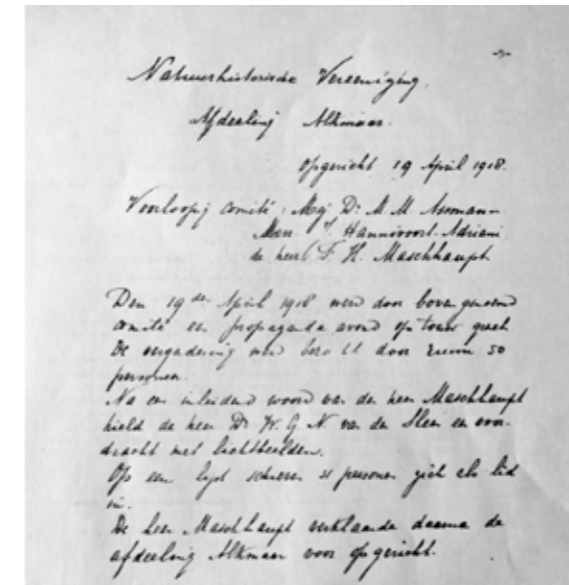 Natuurhistorische Vereeniging.
Afdeeling Alkmaar.
Opgericht 19 April 1918.
Voorloopig comité: Mej. Dr. M. M.
Mevr. Hannivoort-Adriani
de heer F. H. Maschhaupt
Den 19den April 1918 werd door bovengenoemd
comité een propaganda avond op touw gezet
De vergadering werd bezocht door ruim 50
personen.
Na een inleidend woord van den heer Maschhaupt
hield de heer Dr. W. G. N. van der Sleen een voor-
dracht met lichtbeelden.
Op een lijst schreven 31 personen zich als lid
in.
De heer Maschhaupt verklaarde daarna de
afdeeling Alkmaar voor opgericht.